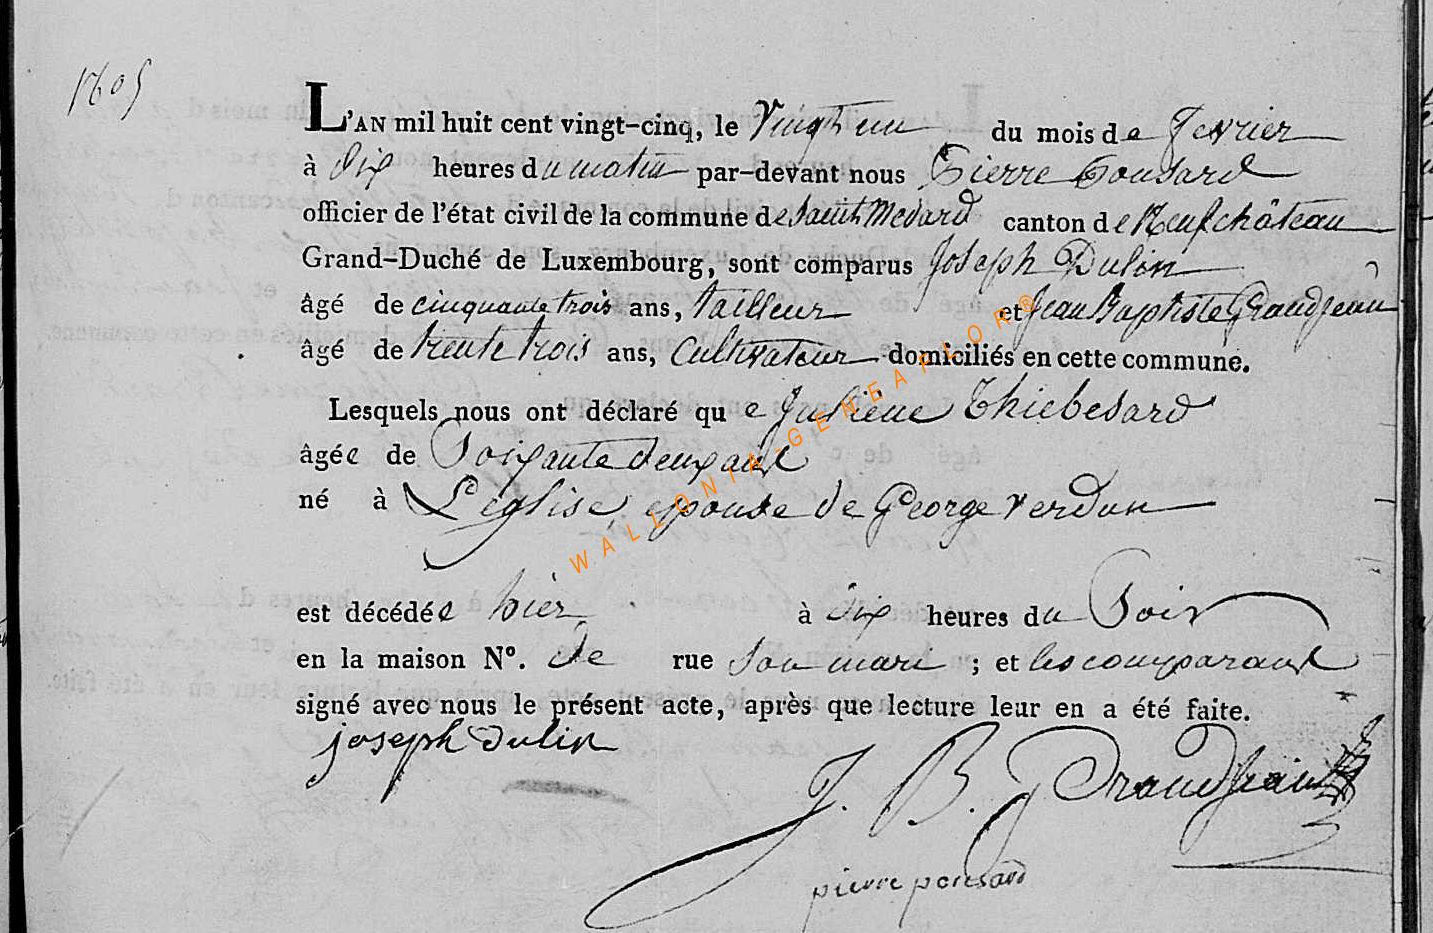 1605
L'AN mil huit cent vingt-cinq, le Vingt un du mois de Fevrier
à dix heures du matin par-devant nous Pierre Ponsard
officier de l'état civil de la commune de Saint Medard canton de Neufchâteau
Grand-Duché de Luxembourg, sont comparus Joseph Dulin
âgé de cinquante trois ans, tailleur et Jean Baptiste Grandjean
âgé de trente trois ans, Cultivateur domiciliés en cette commune.
Lesquels nous ont déclaré qu e Juliene Thiebesard
âgée de Soixante deux ans
né à L'église, epouse de George Verdun
est décédée hier à dix heures du Soir
en la maison N°. de rue son mari ; et les comparant
signé avec nous le présent acte, après que lecture leur en a été faite.
joseph dulin
J. B. Grandjean
pierre ponsard
WALLONIA-GENEAFLOR®